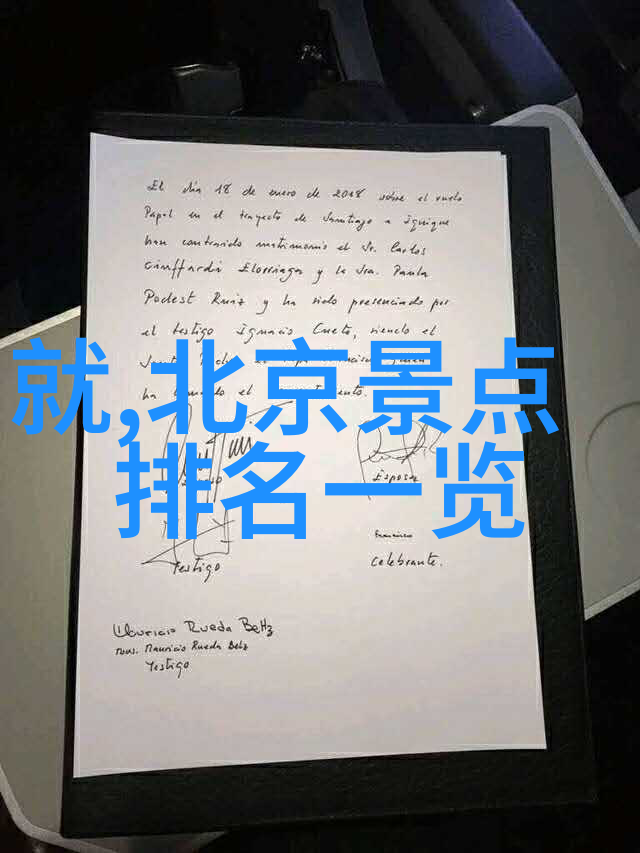 El día 18 de enero de 2018 sobre el vuelo
Papal en el trayecto de Santiago a Iquique
han contraido matrimonio el Sr. Carlos
Ciuffardi Elorriaga y la Sra. Paula
Podest Ruiz y ha sido presenciado por
el testigo Ignacio Cueto, siendo el
就,北京景点
ha
排名一览
Esposa
Testigo
Francisco
Celebrante.
Mauricio Rueda Beltz
Mons. Mauricio Rueda Beltz
Testigo